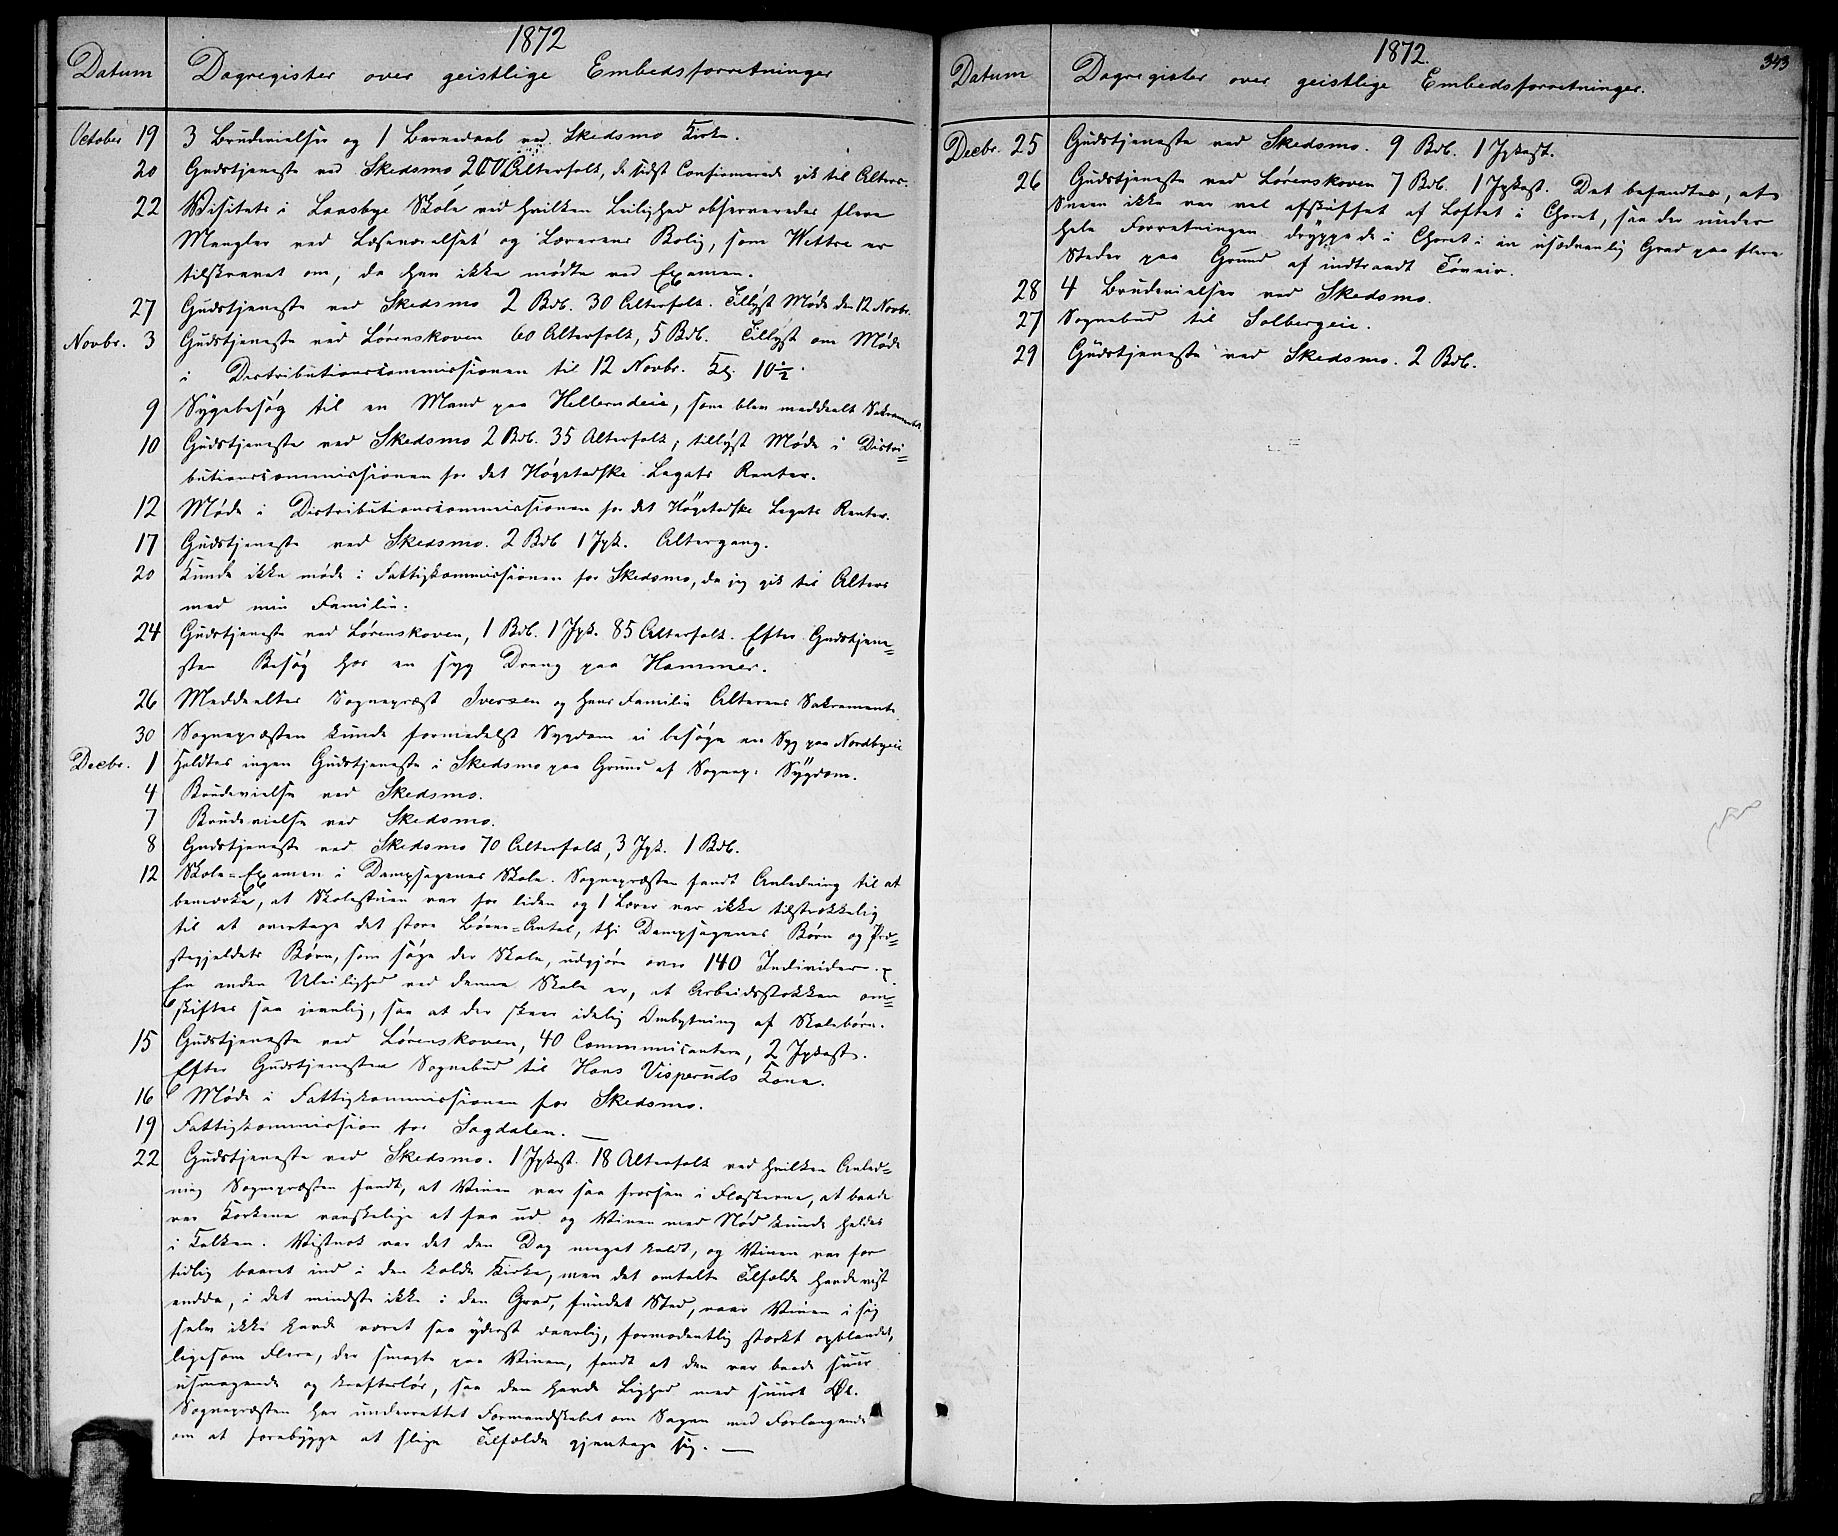 1872
Datum Dagregister over geistlige Embedsforretninger
October 19 3 Brudevielser og 1 Barnedaab ved Skedsmo Kirke.
20 Gudstjeneste ved Skedsmo 200 Alterfolk, de sidst Confirmerede gik til Alters.
22 Visitats i Laasbye Skole ved hvilken Leilighed observeredes flere
Mangler ved Læseværelset og Lærerens Bolig, som Wettre er
tilskrevet om, da han ikke mødte ved Examen.
27 Gudstjeneste ved Skedsmo 2 Bdb. 30 Alterfolk. Tillyst Møde den 12 Novbr.
Novbr. 3 Gudstjeneste ved Lørenskoven 60 Alterfolk, 5 Bdb. Tillyst om Møde
i Distributionscommissionen til 12 Novbr. Kl. 10½.
9 Sygebesøg til en Mand paa Hellerudeie, som blev meddeelt Sakramentet
10 Gudstjeneste ved Skedsmo 2 Bdb. 35 Alterfolk; tillyst Møde i Distri=
butionscommissionen for det Høgstadske Legats Renter.
12 Møde i Distributionscommissionen for det Høgstadske Legats Renter.
17 Gudstjeneste ved Skedsmo. 2 Bdb 1 Jgk. Altergang.
20 Kunde ikke møde i Fattigkommissionen for Skedsmo, da jeg gik til Alters
med min Familie.
24 Gudstjeneste ved Lørenskoven, 1 Bdb. 1 Jgk. 85 Alterfolk. Efter Gudstjene=
sten Besøg hos en syg Dreng paa Hammer.
26 Meddeeltes Sognepræst Iversen og hans Familie Alterens Sakramente
30 Sognepræsten kunde formedelst Sygdom ei besøge en Syg paa Nordbyeie
Decbr. 1 Holdtes ingen Gudstjeneste i Skedsmo paa Grund af Sognep: Sygdom.
4 Brudevielse ved Skedsmo.
7 Brudevielse ved Skedsmo.
8 Gudstjeneste ved Skedsmo 70 Alterfolk, 3 Jgk. 1 Bdb.
12 Skole=Examen i Dampsagenes Skole. Sognepræsten fandt Anledning til at
bemærke, at Skolestuen var for liden og 1 Lærer var ikke tilstrækkelig
til at overtage det store Børne=Antal, thi Dampsagenes Børn og Præ=
stegjeldets Børn, som søge der Skole, udgjøre over 140 Individer.
En anden Uleilighed ved denne Skole er, at Arbeidsstokken om=
skiftes saa jevnlig, saa at der skeer idelig Ombytning af Skolebørn.
15 Gudstjeneste ved Lørenskoven, 40 Communicantere, 2 Jgkast.
Efter Gudstjenesten Sognebud til Hans Visperuds Kone.
16 Møde i Fattigkommissionen for Skedsmo.
19 Fattigkommission for Sagdalen. —
22 Gudstjeneste ved Skedsmo. 1 Jgkast. 18 Alterfolk ved hvilken Anled=
ning Sognepræsten fandt, at Vinen var saa frossen i Flaskerne, at baade
var Korkene vanskelige at faa ud og Vinen med Nød kunde heldes
i Kalken. Vistnok var det den Dag meget koldt, og Vinen var for
tidlig baaret ind i den kolde Kirke, men det omtalte Tilfælde havde vist
endda, i det mindste ikke i den Grad, fundet Sted, naar Vinen i sig
selv ikke havde været saa yderst daarlig, formodentlig stærkt opblandet,
ligesom Flere, der smagte paa Vinen, fandt at den var baade suur
usmagende og krafteløs, saa den havde Lighed med suurt Øl.
Sognepræsten har underrettet Formandskabet om Sagen med Forlangende
om at forebygge at slige Tilfælde gjentage sig. —
1872. 343
Datum Dagregister over geistlige Embedsforretninger.
Decbr. 25 Gudstjeneste ved Skedsmo. 9 Bdb. 1 Jgkast.
26 Gudstjeneste ved Lørenskoven 7 Bdb. 1 Jgkast. Det befandtes, at
Sneen ikke var vel afskuffet af Loftet i Choret, saa der under
hele Forretningen dryppede i Choret i en usædvanlig Grad paa flere
Steder paa Grund af indtraadt Tøveir.
28 4 Brudevielser ved Skedsmo.
27 Sognebud til Solbergeie.
29 Gudstjeneste ved Skedsmo. 2 Bdb.